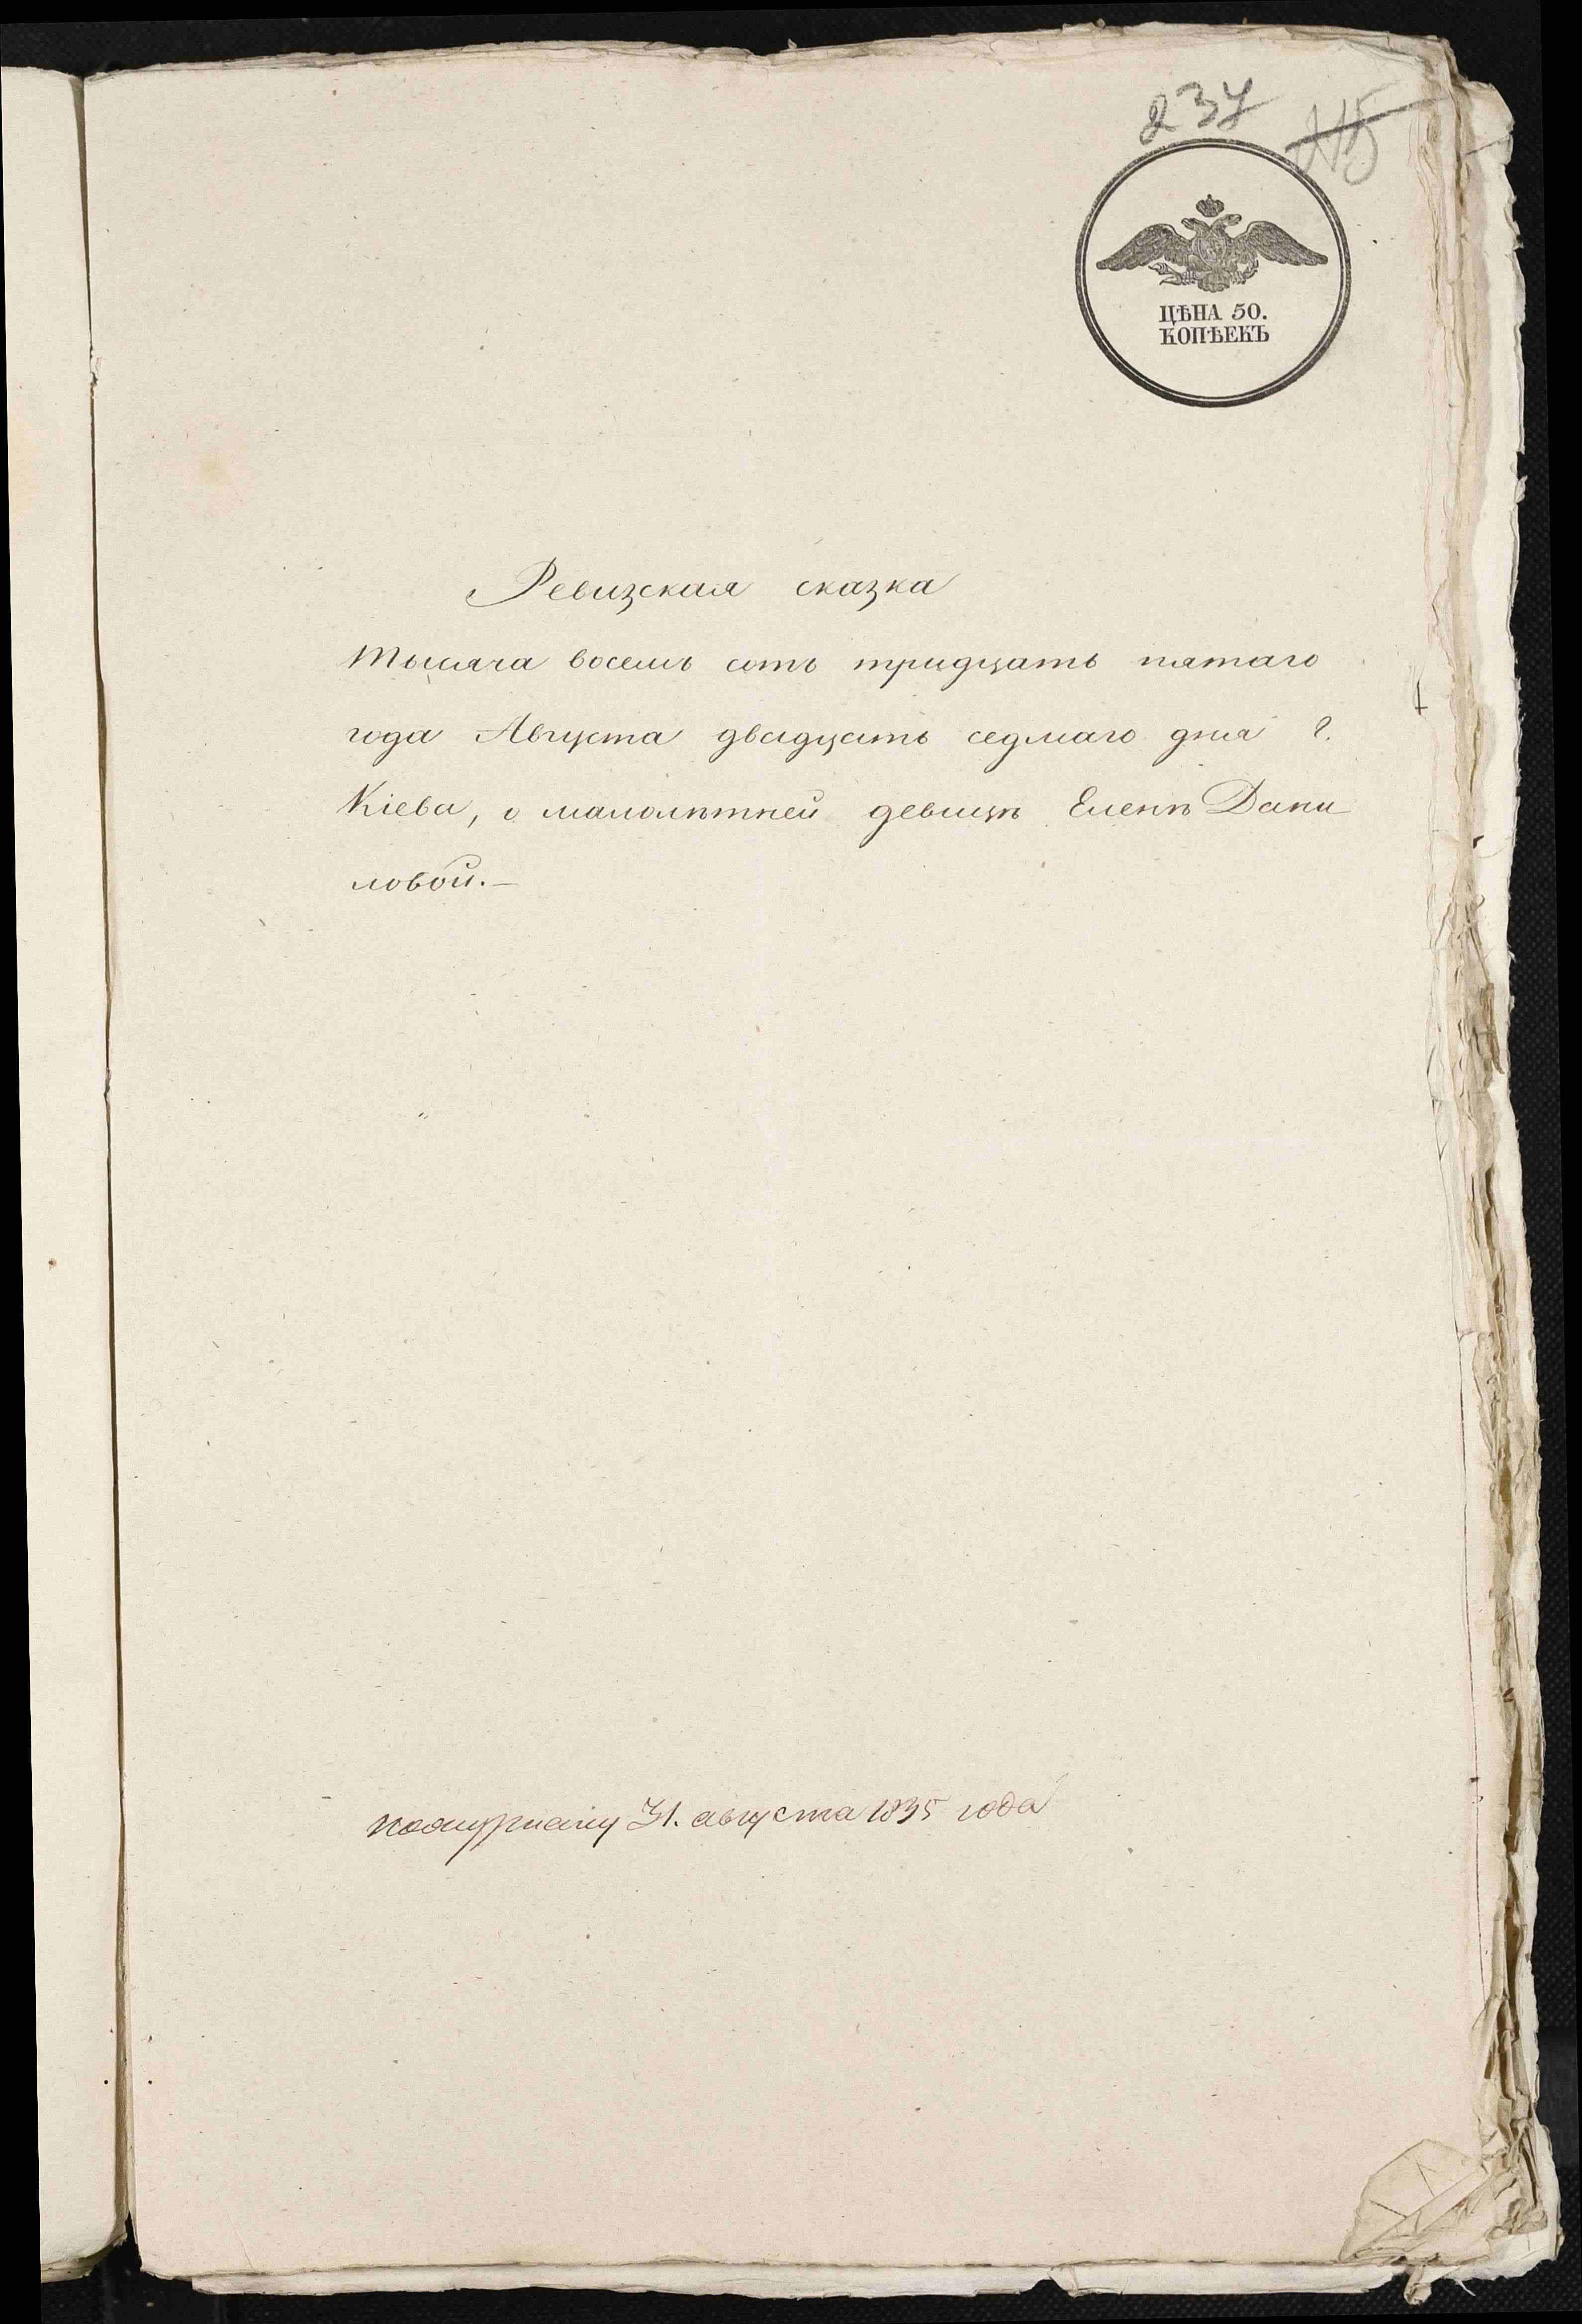 237
ЦѢНА 50.
КОПѢЕКЪ
Ревизская сказка
Тысяча восемь сотъ тридцать пятаго
года Августа двадцать седмаго дня г.
Кіева, о малолѣтней девицѣ Еленѣ Дани
ловой.—
по журналу 31. августа 1835 года